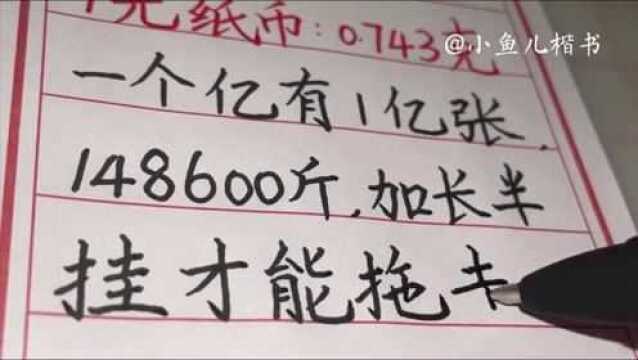 1元纸币:0.743克
@小鱼儿楷书
一个亿有1亿张,
148600斤,加长半
挂才能拖